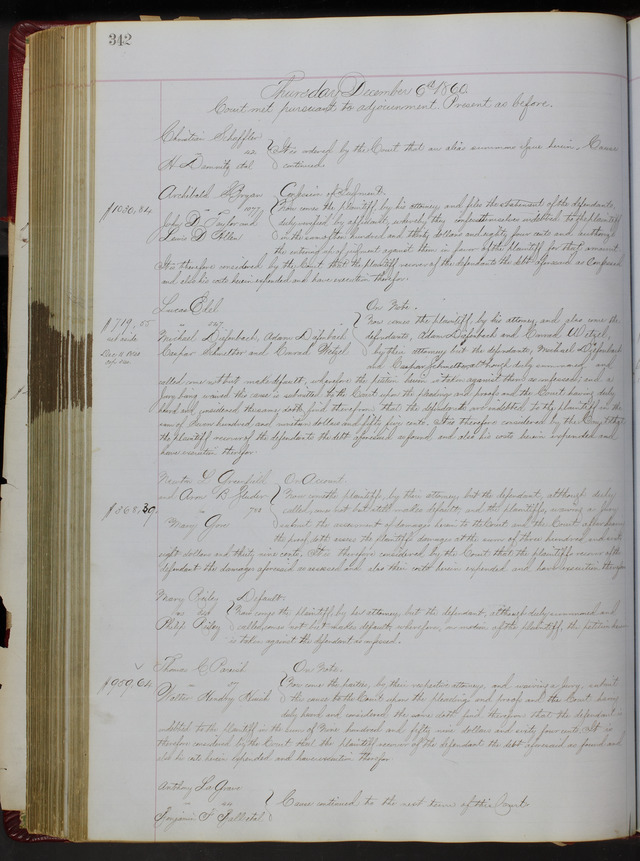 342
Thursday December 6th 1860
Court met pursuant to adjournment. Present as before.
Christian Scheffler
vs
H Demnitz etal
It is ordered by the Court that an alias summons issue herein. Cause
continued.
$1030,84
Archibald Bryan
vs
John D. Taylor and
Lewis D.
Confession of Judgment.
Now comes the plaintiff by his attorney and files the statement of the defendants
duly verified by affidavit, whereby they confess themselves indebted to the plaintiff
in the sum of ten hundred and thirty dollars and eighty four cents and authorize
the entering up of judgment against them in favor of the plaintiff for that amount
It is therefore considered by the Court that the plaintiff recover of the defendants the debt aforesaid as confessed
and also his costs herein expended and have execution therefor.
$719,55
set aside
Lucas Edel
vs
Michael Diefenbach, Adam Diefenbach
Caspar Schuetter and Conrad Wetzel
On Note.
Now comes the plaintiff, by his attorney, and also come the
defendants, Adam Diefenbach and Conrad Wetzel,
by their attorney but the defendants, Michael Diefenbach
and Caspar although duly summoned and
called, come not but make default, wherefore the petition herein is taken against them as confessed; and a
jury being waived this cause is submitted to the Court upon the pleadings and proofs and the Court having duly
heard and considered the same doth find therefrom that the defendants are indebted to the plaintiff in the
sum of Seven hundred and nineteen dollars and fifty five cents. It is therefore considered by the Court that
the plaintiff recover of the defendants the debt aforesaid as found and also his costs herein expended and
have execution therefor.
$368.39
Newton L
and B
vs
Mary Gore
On Account.
Now come the plaintiffs, by their attorney, but the defendant, although duly
called, comes not but makes default; and the plaintiffs, waiving a jury
submit the assessment of damages herein to the Court and the Court after hearing
the proof doth assess the plaintiffs damages at the sum of three hundred and sixty
eight dollars and thirty nine cents. It is therefore considered by the Court that the plaintiffs recover of the
defendant the damages aforesaid so assessed and also their costs herein expended and have execution therefor.
Mary Bailey
vs
Philip Bailey
Default.
Now comes the plaintiff by her attorney, but the defendant, although duly summoned and
called, comes not but makes default; wherefore, on motion of the plaintiff, the petition herein
is taken against the defendant as confessed.
$959,64
Thomas C. Parrish
vs
Walter Handley
On Note.
Now come the parties, by their respective attorneys, and waiving a jury, submit
the cause to the Court upon the pleadings and proof and the Court having
duly heard and considered the same doth find therefrom that the defendant is
indebted to the plaintiff in the sum of Nine hundred and fifty nine dollars and sixty four cents. It is
therefore considered by the Court that the plaintiff recover of the defendant the debt aforesaid as found and
also his costs herein expended and have execution therefor.
Anthony La Grave
vs
Benjamin F etal
Cause continued to the next term of this Court